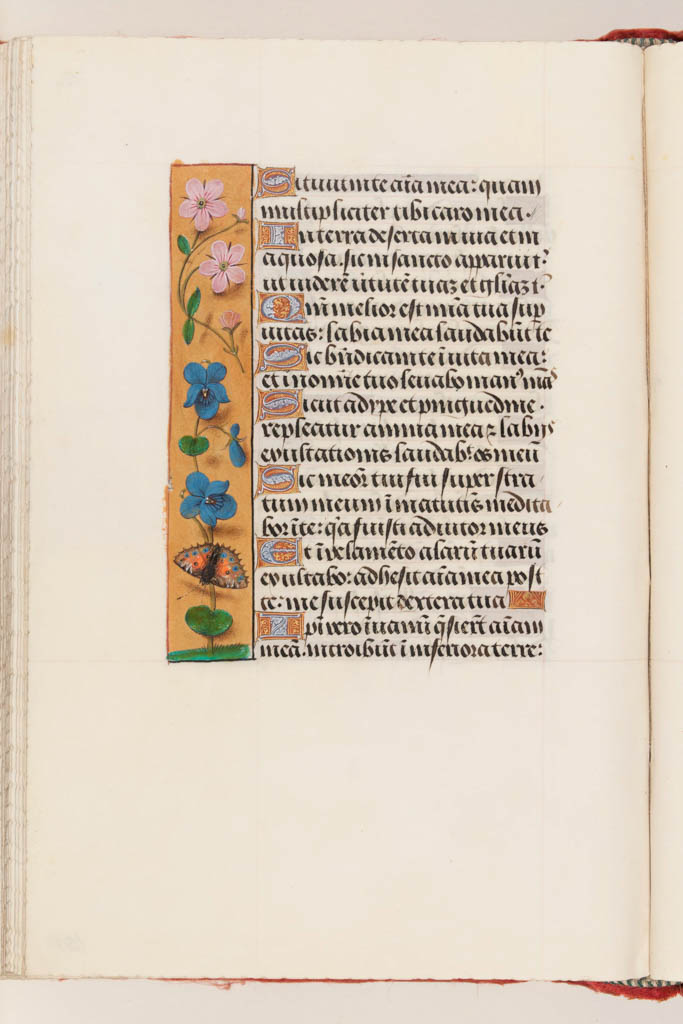 Sitiuit in te aīa mea: quam
multipliciter tibi caro mea.
In terra deserta inuia et in
aquosa. sic in sancto apparui t:
ut uiderē uirtutē tuaz et gl̄iaz t:
Qm̄ melior est mīa tua sup
uitas: labia mea laudabūt te
Sic bn̄dicam te ī uita mea:
et in noīe tuo leuabo man⁹ mās
Sicut adype et pinguedine.
repleatur anima mea: z labijs
exultationis laudab̄ os meū
Sic meōr tui fui super stra
tum meum ī matutīs medita
bor īte: qa fuisti adiutor meus
Et ī velamēto alarū tuarū
exultabo: adhesit aīa mea post
te: me suscepit dextera tua
Ipi vero ī uanū qsierūt aīam
meā. introibūt ī inferiora terre: